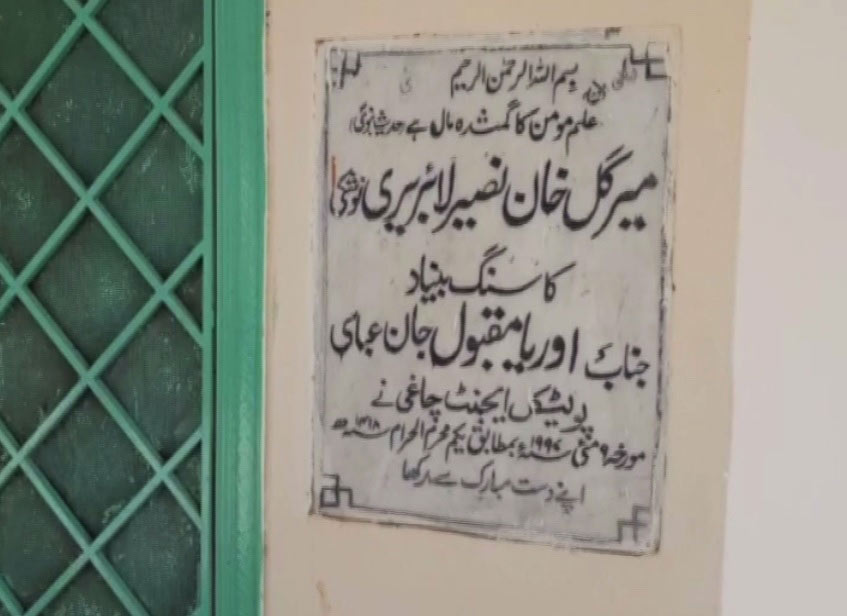 بسم اللہ الرحمٰن الرحیم
علم مومن کا گمشدہ مال ہے (حدیث نبوی)
میر گل خان نصیر لائبریری نوشکی
کا سنگ بنیاد
جناب اوریا مقبول جان عباسی
پولیٹیکل ایجنٹ چاغی نے
مورخہ ۹ مئی ۱۹۹۷ء بمطابق یکم محرم الحرام ۱۴۱۸ھ
اپنے دست مبارک سے رکھا